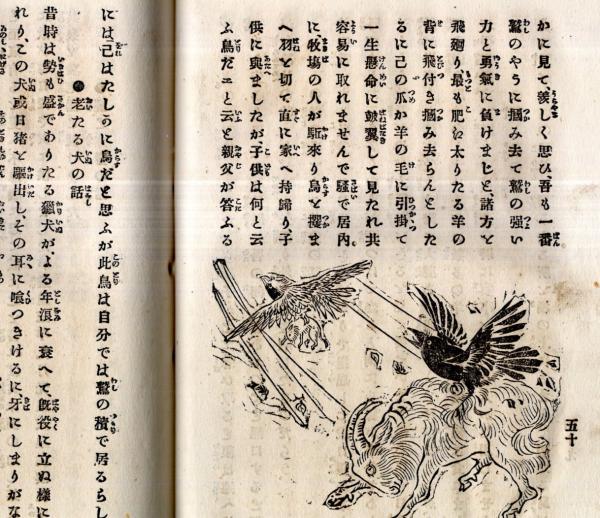 かに見て羨しく思ひ、吾も一番
鷲のやうに掴み去て鷲の強い
力と勇氣に負けまじと、諸方と
飛廻り最も肥え太りたる羊の
背に飛付き掴み去らんとした
るに己の爪か羊の毛に引掛て
一生懸命に皷翼して見たれ共
容易に取れませんで騒で居内
に、牧塲の人が駈來り烏と攫ま
へ羽と切て直に家へ持歸り、子
供に與ましたが、子供は何と云
ふ鳥だエと云と親父が答ふる
五十
には、己はたしうに烏だと思ふが此鳥は自分では鷲の積で居るらし
老たる犬の話
昔時は勢も盛でありたる獵犬が、よる年浪に衰へて、旣役に立ぬ樣に
れり、この犬或日猪と驅出し、その耳に喰つきけるに牙にしまりがな